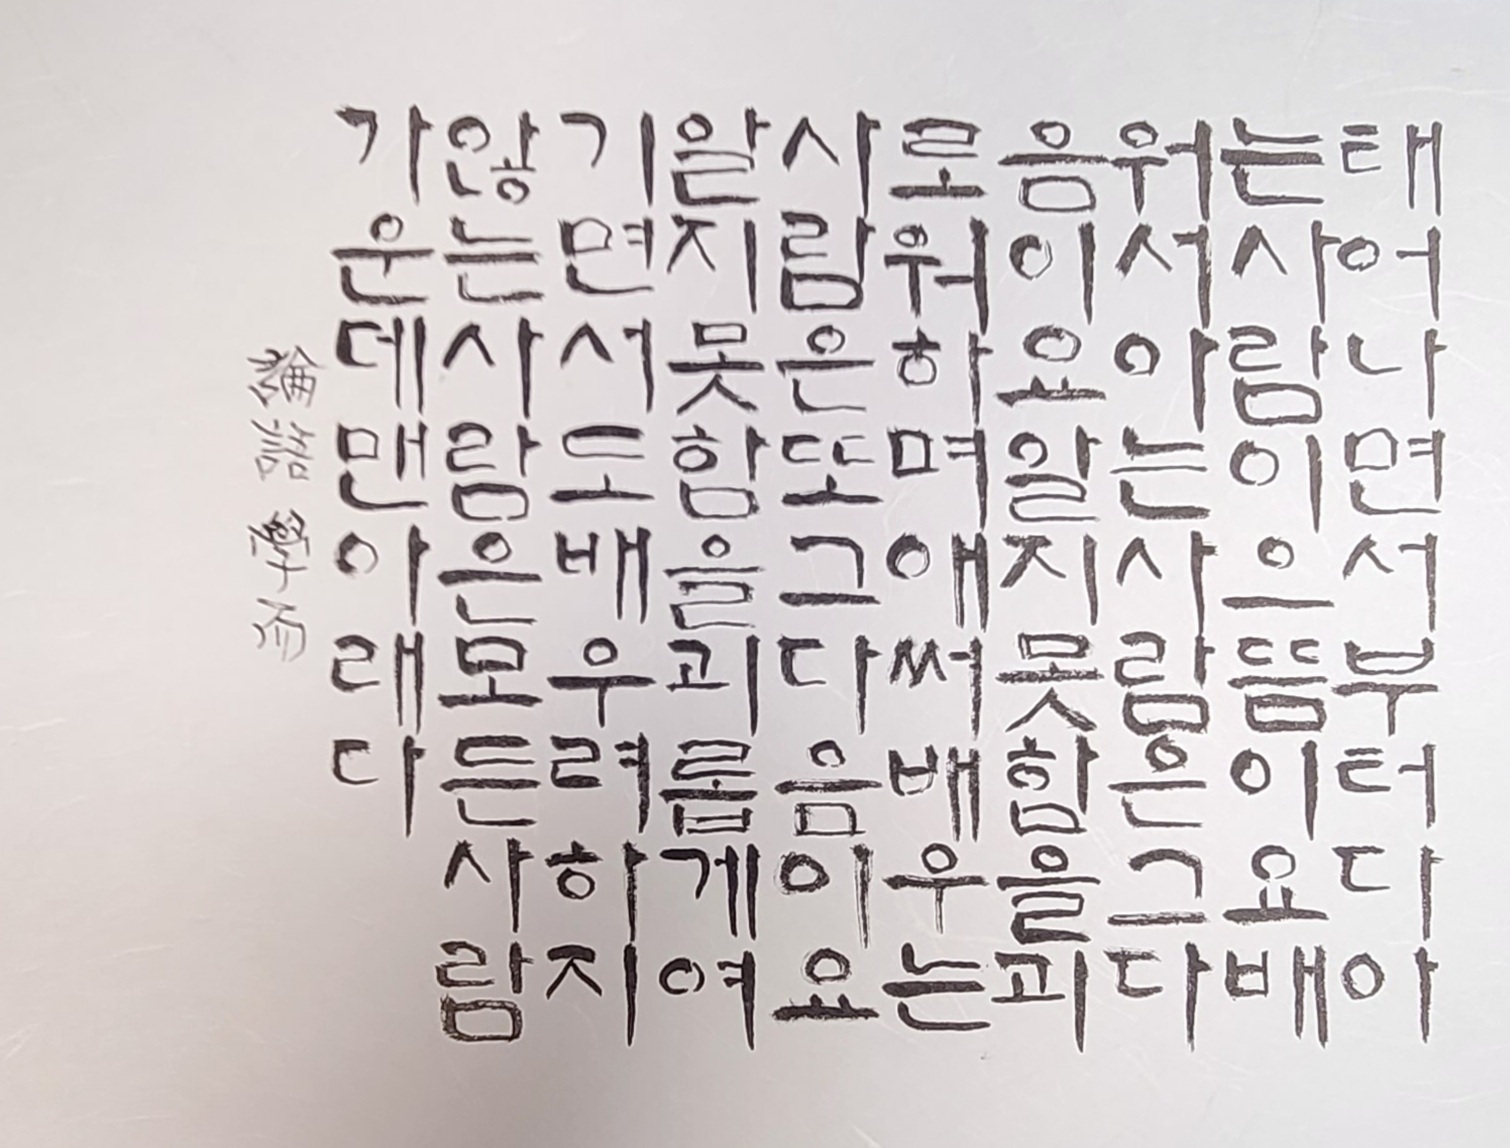 태어나면서부터다아
는사람이으뜸이요배
워서아는사람은그다
음이요알지못함을괴
로워하며애써배우는
사람은또그다음이요
알지못함을괴롭게여
기면서도배우려하지
않는사람은모든사람
가운데맨아래다
論語 學而